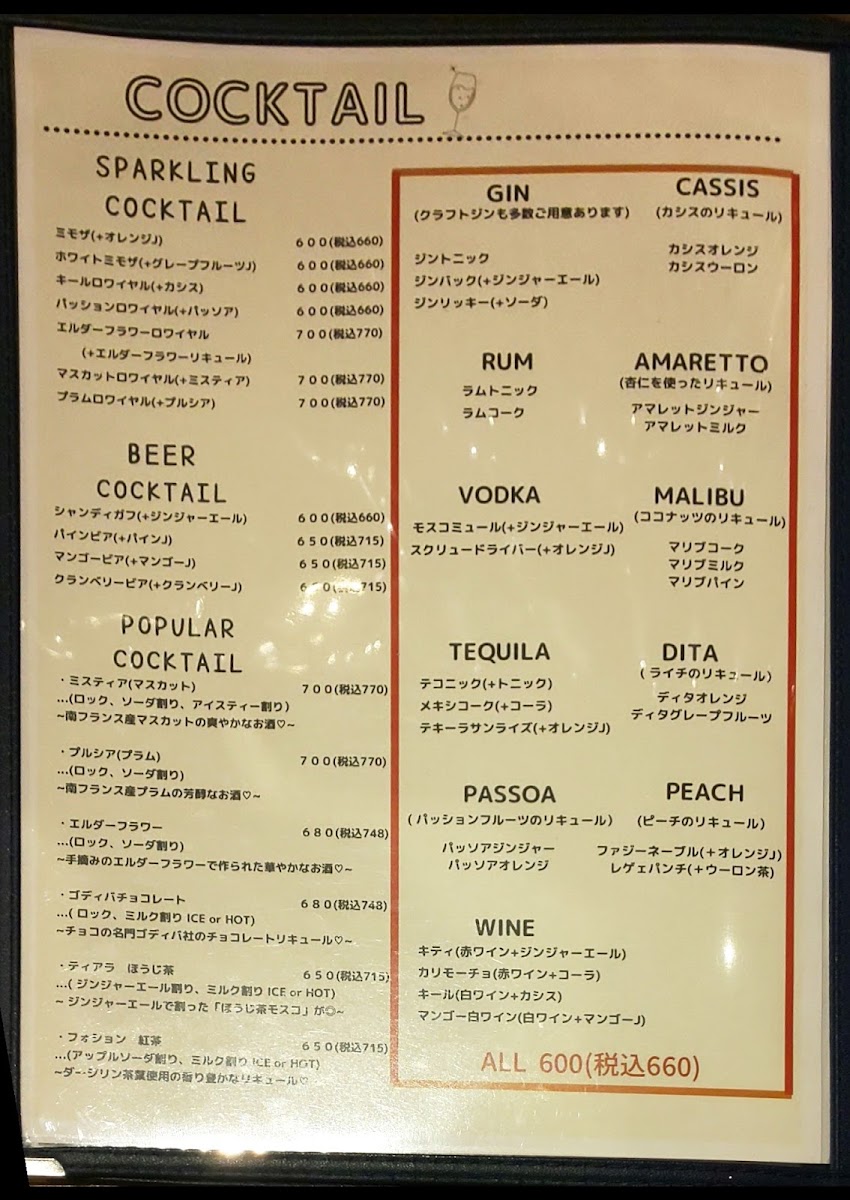 COCKTAIL
SPARKLING
COCKTAIL
ミモザ(+オレンジJ) 600(税込660)
ホワイトミモザ(+グレープフルーツJ) 600(税込660)
キールロワイヤル(+カシス) 600(税込660)
パッションロワイヤル(+パッソア) 600(税込660)
エルダーフラワーロワイヤル 700(税込770)
(+エルダーフラワーリキュール)
マスカットロワイヤル(+ミスティア) 700(税込770)
プラムロワイヤル(+プルシア) 700(税込770)
BEER
COCKTAIL
シャンディガフ(+ジンジャーエール) 600(税込660)
パインビア(+パインJ) 650(税込715)
マンゴービア(+マンゴーJ) 650(税込715)
クランベリービア(+クランベリーJ) 650(税込715)
POPULAR
COCKTAIL
・ミスティア(マスカット) 700(税込770)
…(ロック、ソーダ割り、アイスティー割り)
~南フランス産マスカットの爽やかなお酒♡~
・プルシア(プラム) 700(税込770)
…(ロック、ソーダ割り)
~南フランス産プラムの芳醇なお酒♡~
・エルダーフラワー 680(税込748)
…(ロック、ソーダ割り)
~手摘みのエルダーフラワーで作られた華やかなお酒♡~
・ゴディバチョコレート 680(税込748)
…( ロック、ミルク割り ICE or HOT)
~チョコの名門ゴディバ社のチョコレートリキュール♡~
・ティアラ ほうじ茶 650(税込715)
…( ジンジャーエール割り、ミルク割り ICE or HOT)
~ ジンジャーエールで割った「ほうじ茶モスコ」が◎~
・フォション 紅茶 650(税込715)
…(アップルソーダ割り、ミルク割り ICE or HOT)
~ダージリン茶葉使用の香り豊かなリキュール♡
GIN
(クラフトジンも多数ご用意あります)
ジントニック
ジンバック(+ジンジャーエール)
ジンリッキー(+ソーダ)
CASSIS
(カシスのリキュール)
カシスオレンジ
カシスウーロン
RUM
ラムトニック
ラムコーク
AMARETTO
(杏仁を使ったリキュール)
アマレットジンジャー
アマレットミルク
VODKA
モスコミュール(+ジンジャーエール)
スクリュードライバー(+オレンジJ)
MALIBU
(ココナッツのリキュール)
マリブコーク
マリブミルク
マリブパイン
TEQUILA
テコニック(+トニック)
メキシコーク(+コーラ)
テキーラサンライズ(+オレンジJ)
DITA
( ライチのリキュール)
ディタオレンジ
ディタグレープフルーツ
PASSOA
( パッションフルーツのリキュール)
パッソアジンジャー
パッソアオレンジ
PEACH
(ピーチのリキュール)
ファジーネーブル(+オレンジJ)
レゲェパンチ(+ウーロン茶)
WINE
キティ(赤ワイン+ジンジャーエール)
カリモーチョ(赤ワイン+コーラ)
キール(白ワイン+カシス)
マンゴー白ワイン(白ワイン+マンゴーJ)
ALL 600(税込660)